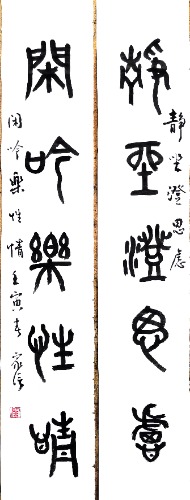 靜坐澄思慮
靜坐澄思慮
閑吟樂性情
閑吟樂性情壬寅春家淳